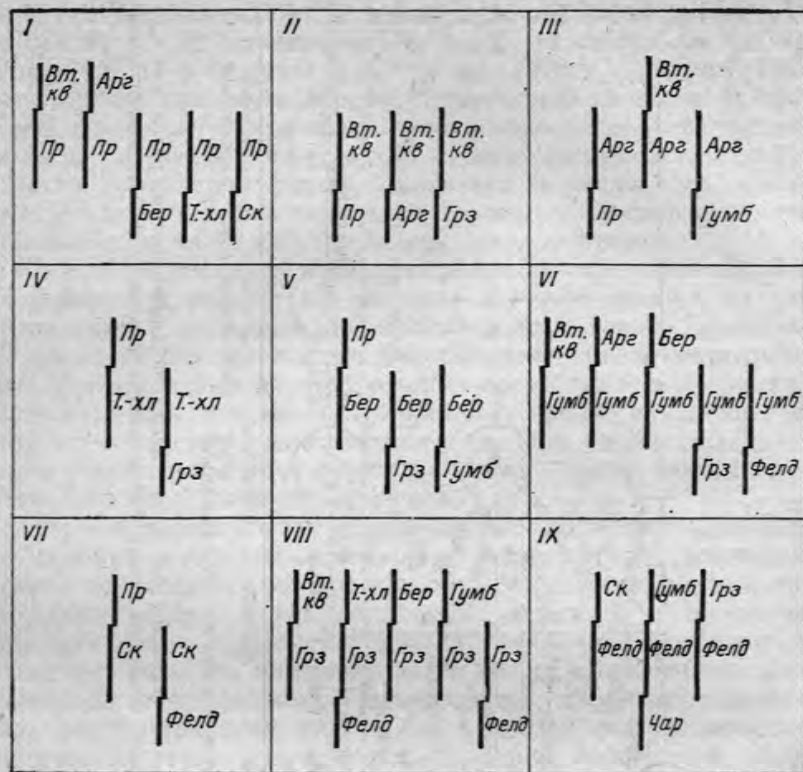 I
Вт. Арг
кв
Пр Пр Пр Пр Пр
Бер Т.-хл Ск
II
Вт. Вт. Вт.
кв кв кв
Пр Арг Грз
III
Вт.
кв
Арг Арг Арг
Пр Гумб
IV
Пр
Т.-хл Т.-хл
Грз
V
Пр
Бер Бер Бер
Грз Гумб
VI
Вт. Арг Бер
кв
Гумб Гумб Гумб Гумб Гумб
Грз Фелд
VII
Пр
Ск Ск
Фелд
VIII
Вт. Т-хл Бер Гумб
кв
Грз Грз Грз Грз Грз
Фелд Фелд
IX
Ск Гумб Грз
Фелд Фелд Фелд
Чар